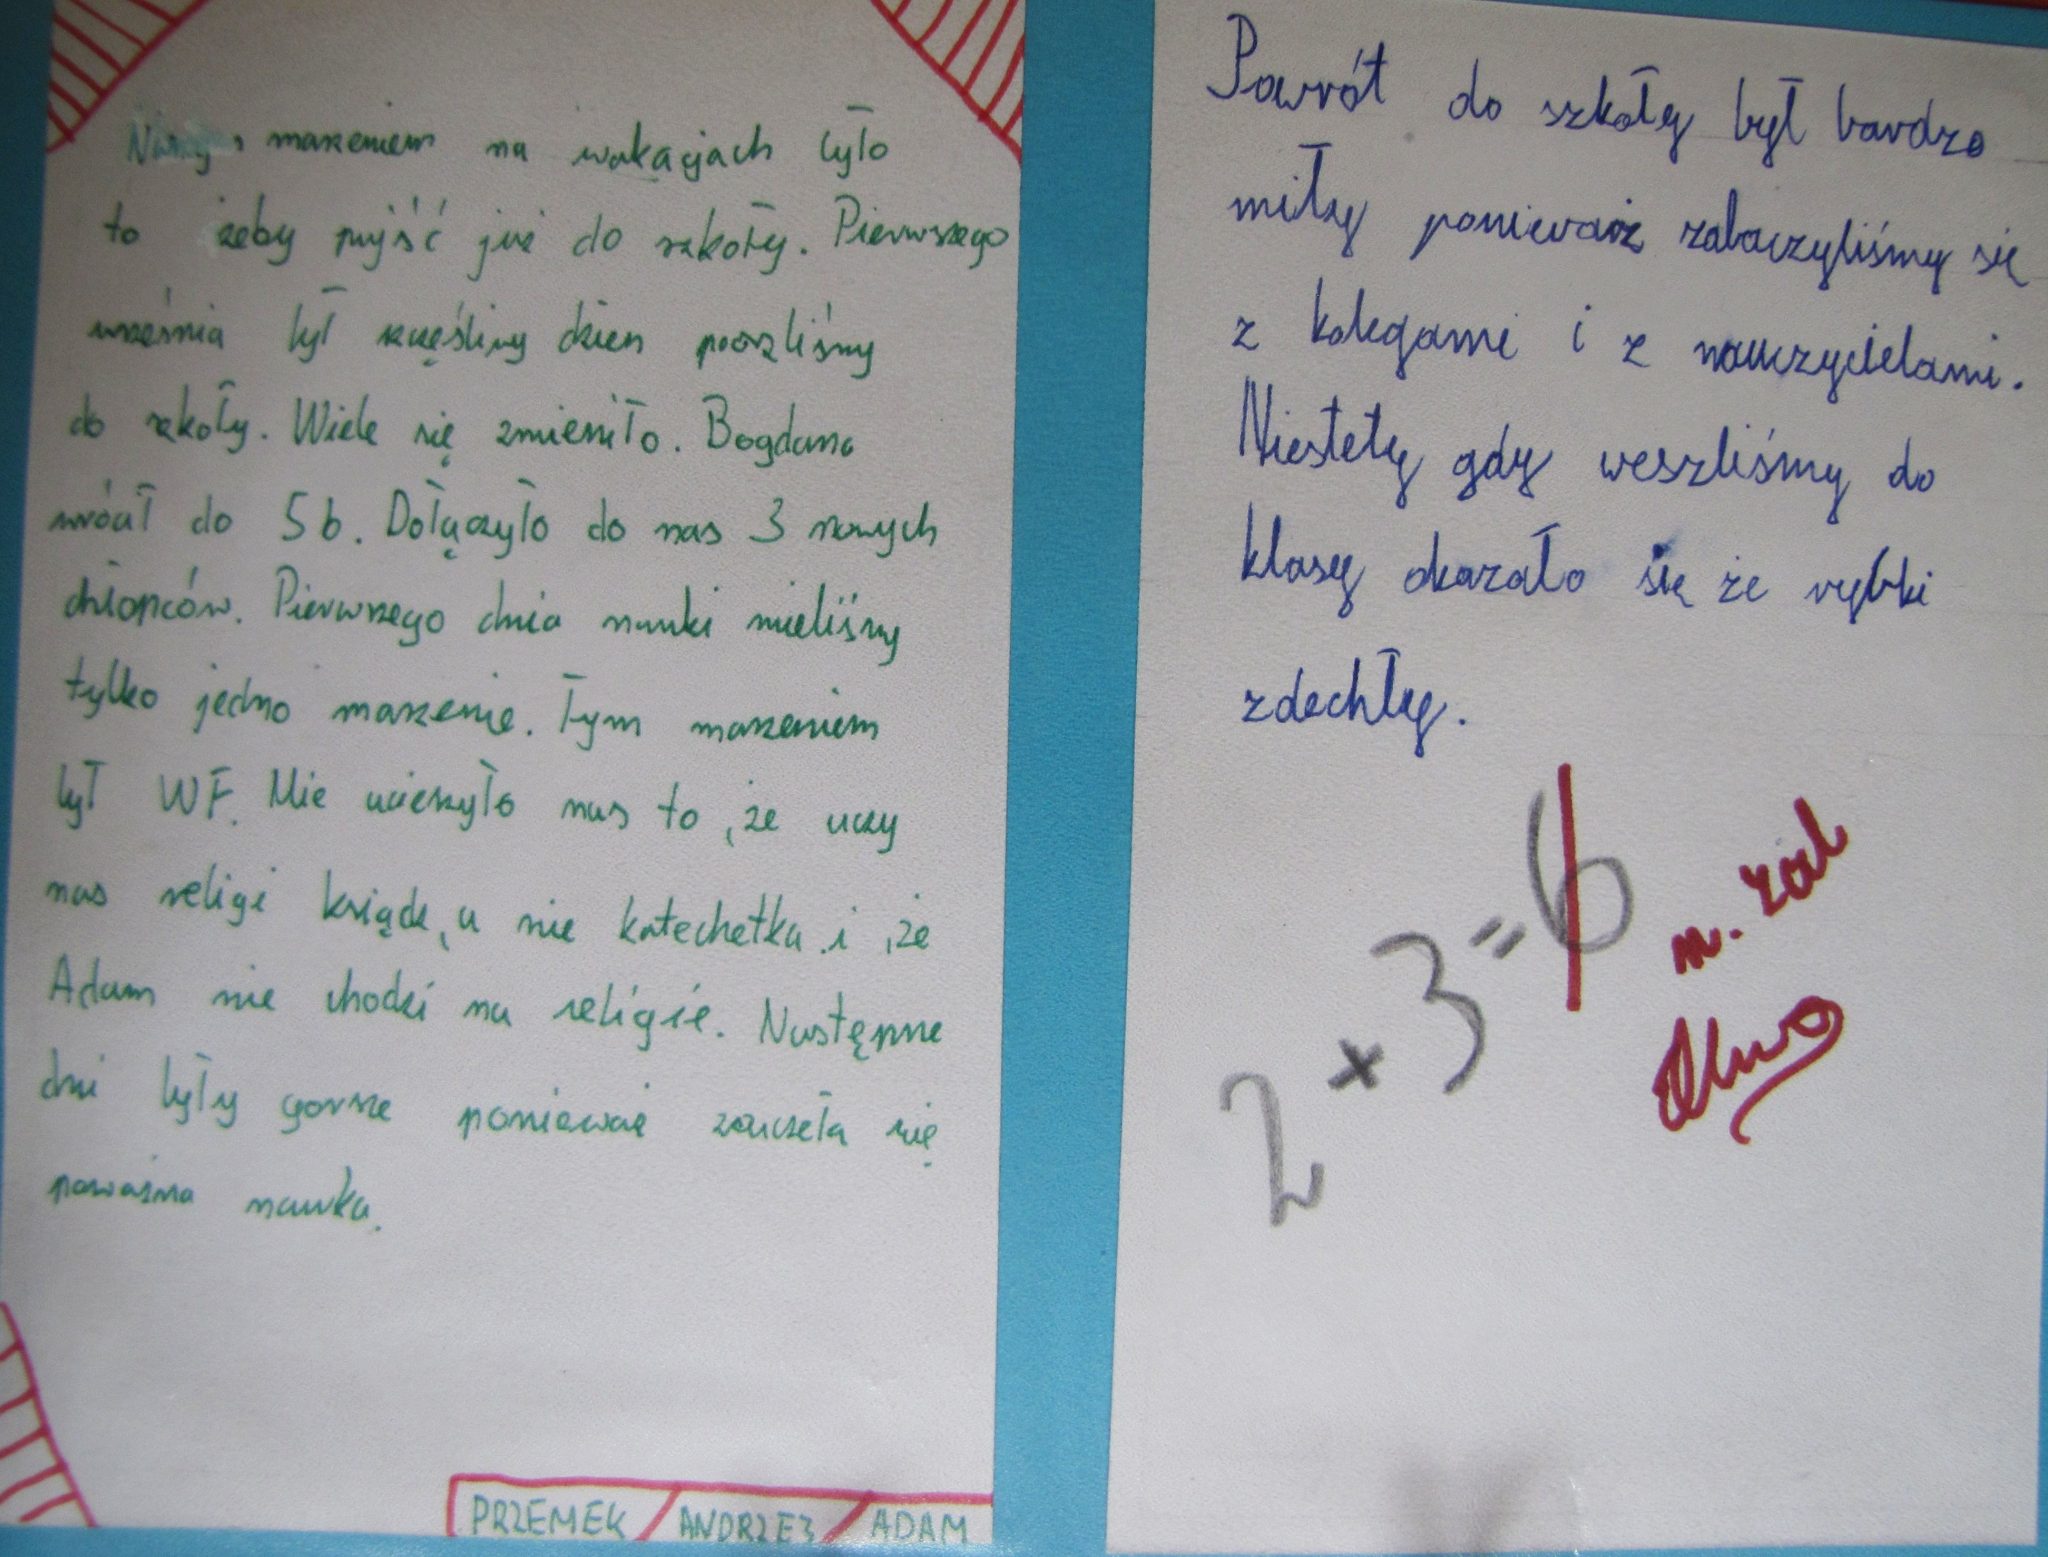 marzeniem na wakacjach było
to żeby pujść już do szkoły. Pierwszego
września był szczęśliwy dzien poszliśmy
do szkoły. Wiele się zmieniło. Bogdana
wrócił do 5b. Dołączyło do nas 3 nowych
chłopców. Pierwszego dnia nauki mieliśmy
tylko jedno marzenie. Tym marzeniem
był WF. Nie ucieszyło nas to, że uczy
nas religi ksiądz, a nie katechetka i, że
Adam nie chodzi na religie. Następne
dni były gorsze ponieważ zaczeła się
poważna nauka.
PRZEMEK / ANDRZEJ / ADAM
Powrót do szkoły był bardzo
miły ponieważ zobaczyliśmy się
z kolegami i z nauczycielami.
Niestety gdy weszliśmy do
klasy okazało się że rybki
zdechły.
2 x 3 = 6